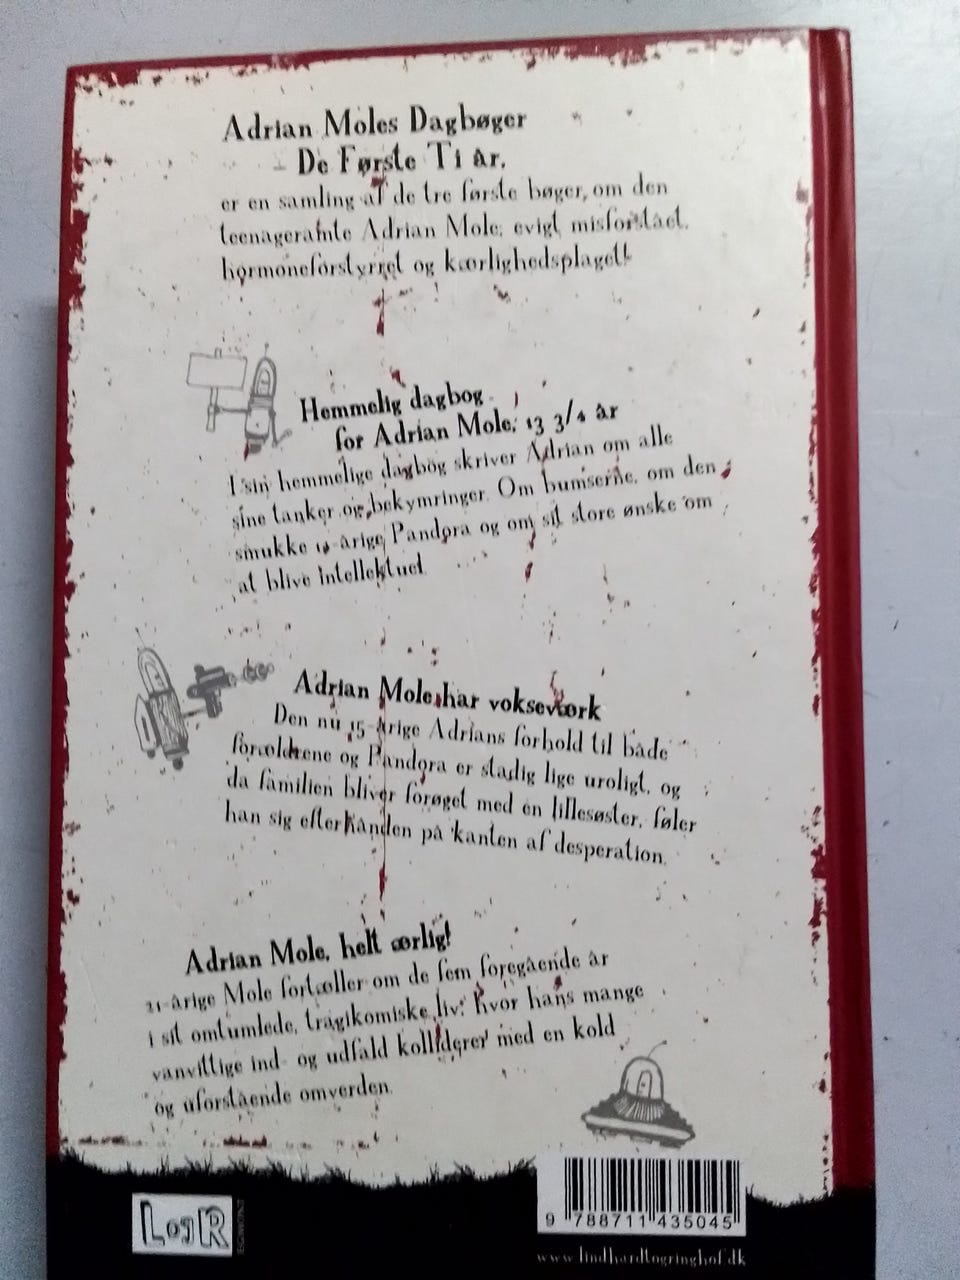 Adrian Moles Dagbøger
- De Første Ti år,
er en samling af de tre første bøger, om den
teenageramte Adrian Mole; evigt misforstået,
hormonforstyrret og kærlighedsplaget!
Hemmelig dagbog
for Adrian Mole, 13 3/4 år
I sin hemmelige dagbog skriver Adrian om alle
sine tanker og bekymringer. Om bumserne, om den
smukke 14-årige Pandora og om sit store ønske om
at blive intellektuel.
Adrian Mole har vokseværk
Den nu 15-årige Adrians forhold til både
forældrene og Pandora er stadig lige uroligt, og
da familien bliver forøget med en lillesøster, føler
han sig efterhånden på kanten af desperation.
Adrian Mole, helt ærlig!
21-årige Mole fortæller om de fem foregående år
i sit omtumlede, tragikomiske liv, hvor hans mange
vanvittige ind- og udfald kolliderer med en kold
og uforstående omverden.
LogR
EGMONT
9 788711 435045
www.lindhardtogringhof.dk